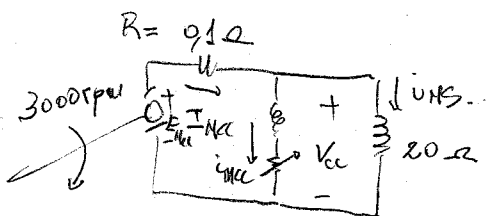 R= 0,1 Ω
3000 rpm
+
E_Mcc
-
I_Mcc
i_Mcc
+
V_cc
-
i_MS.
20 Ω